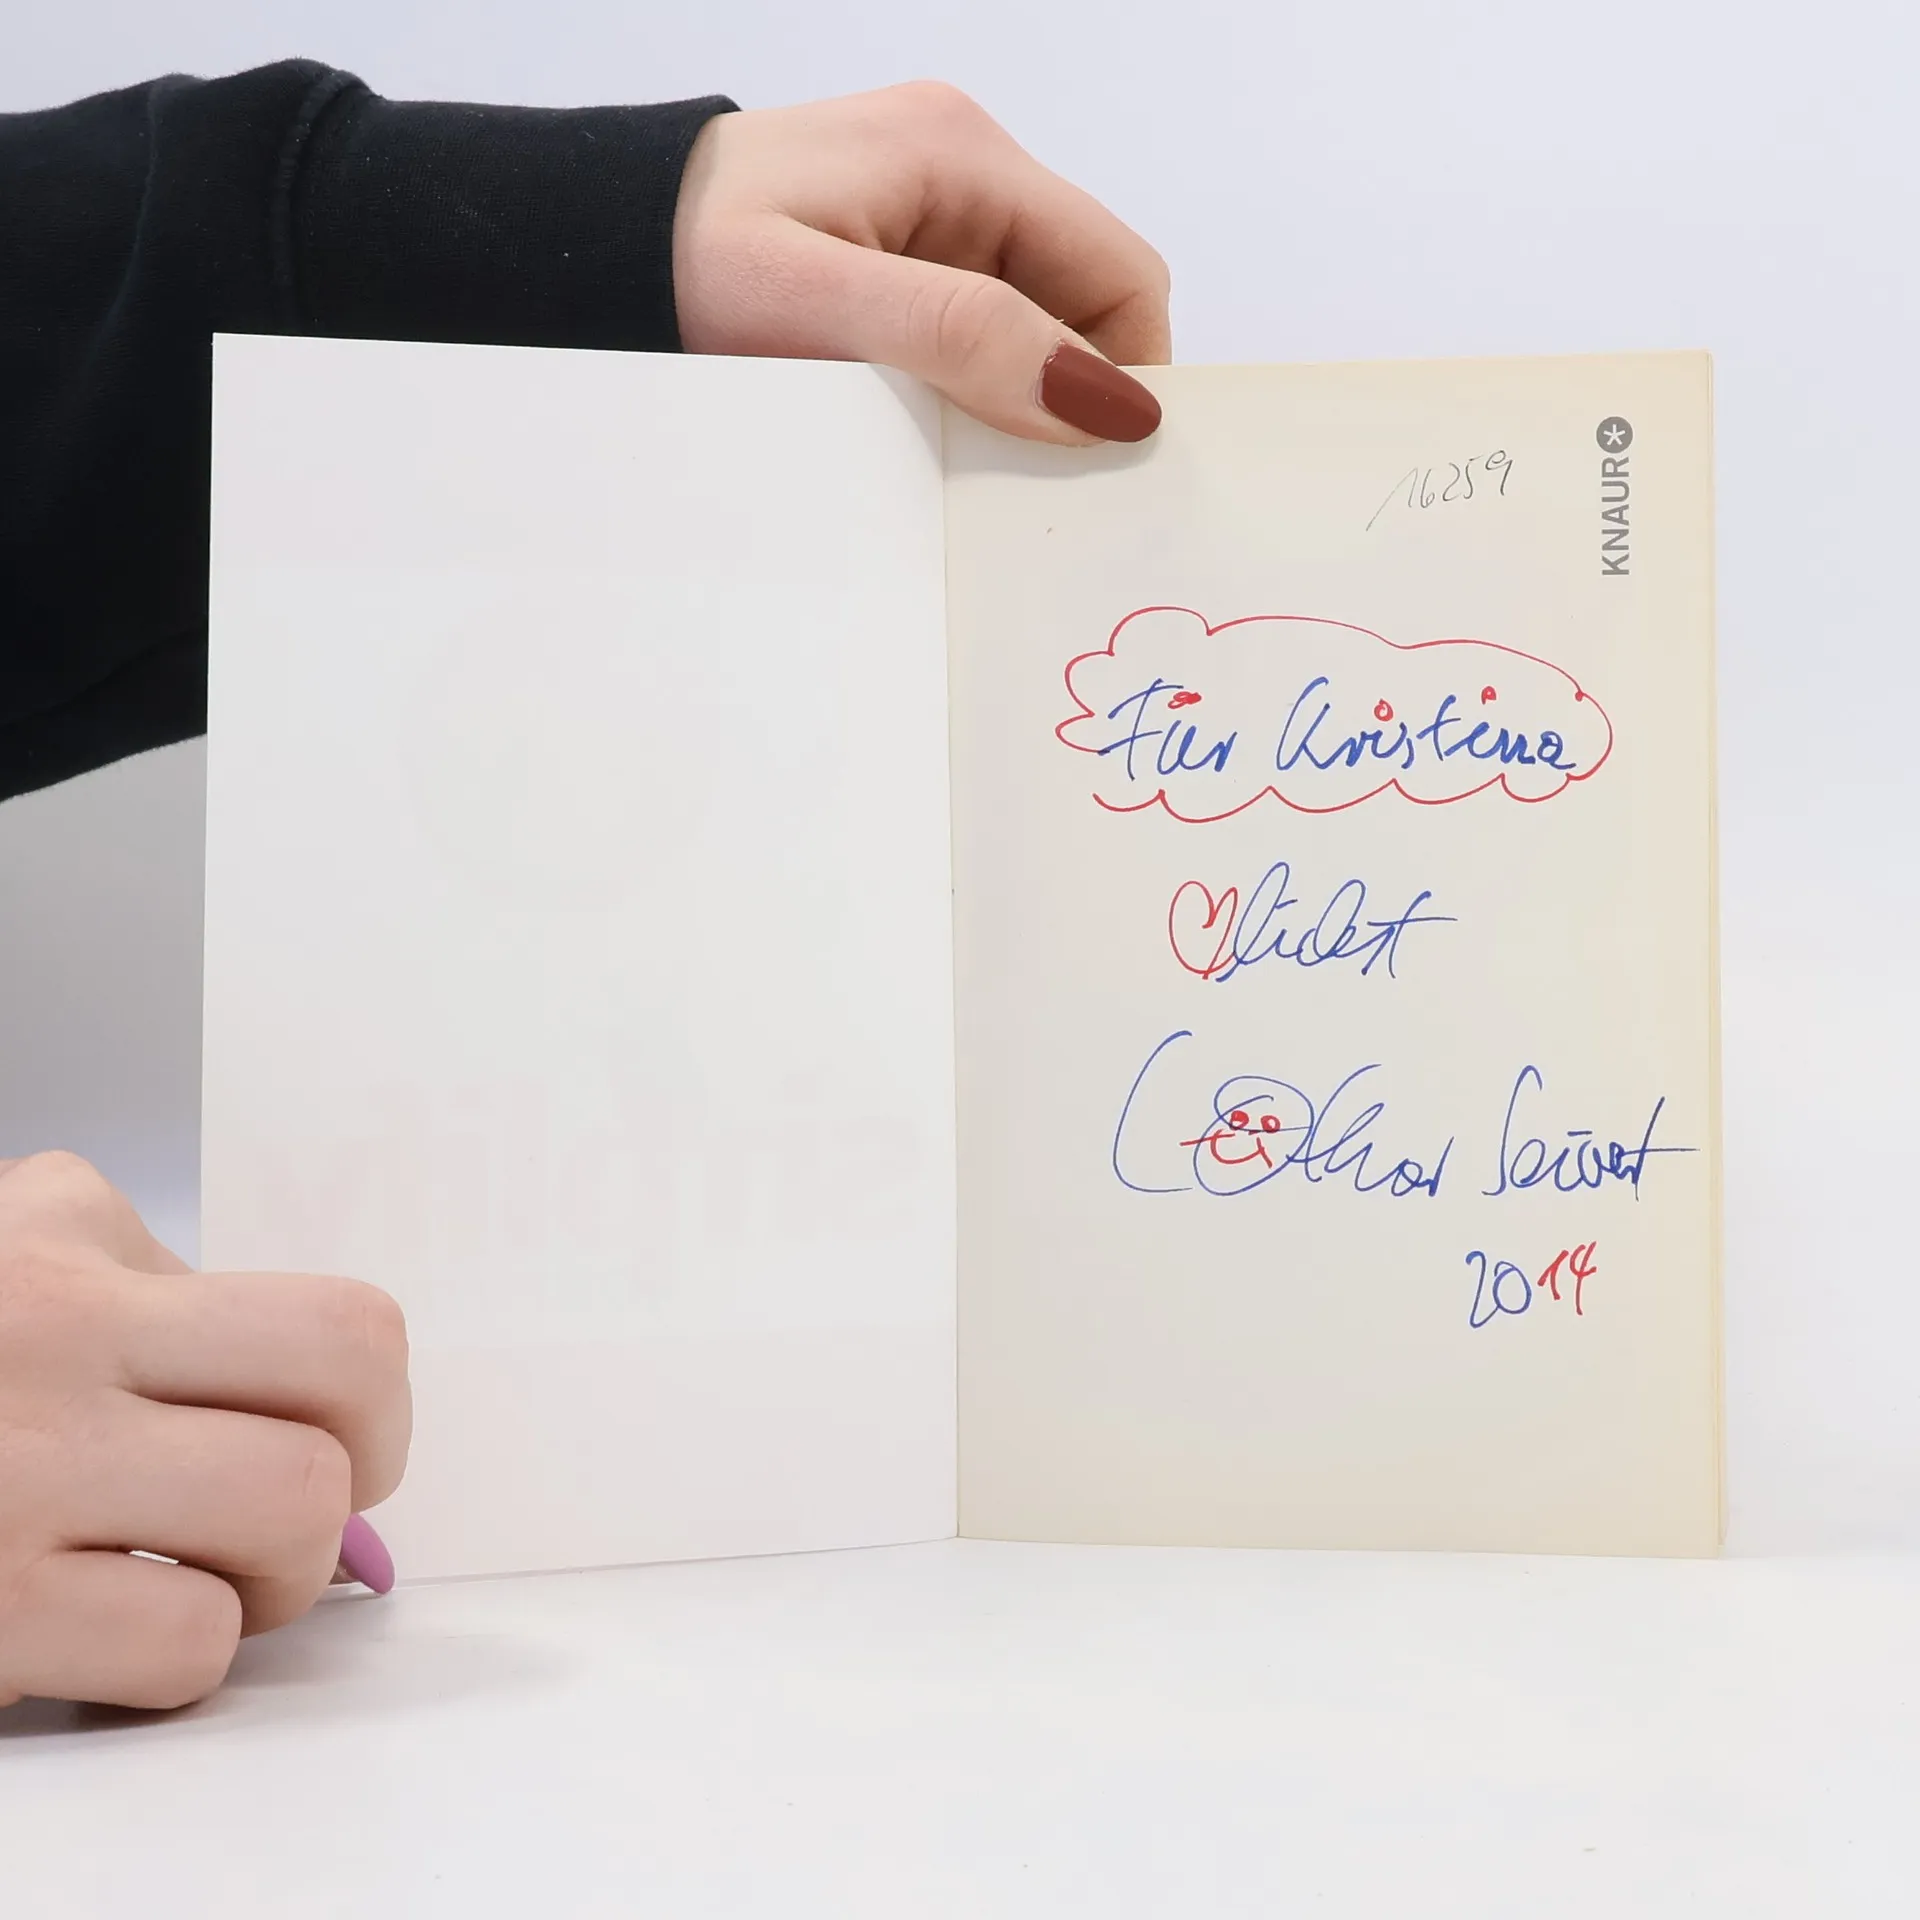 16259
KNAUR
Für Kristina
♡lichst
Lothar Seiwert
2014